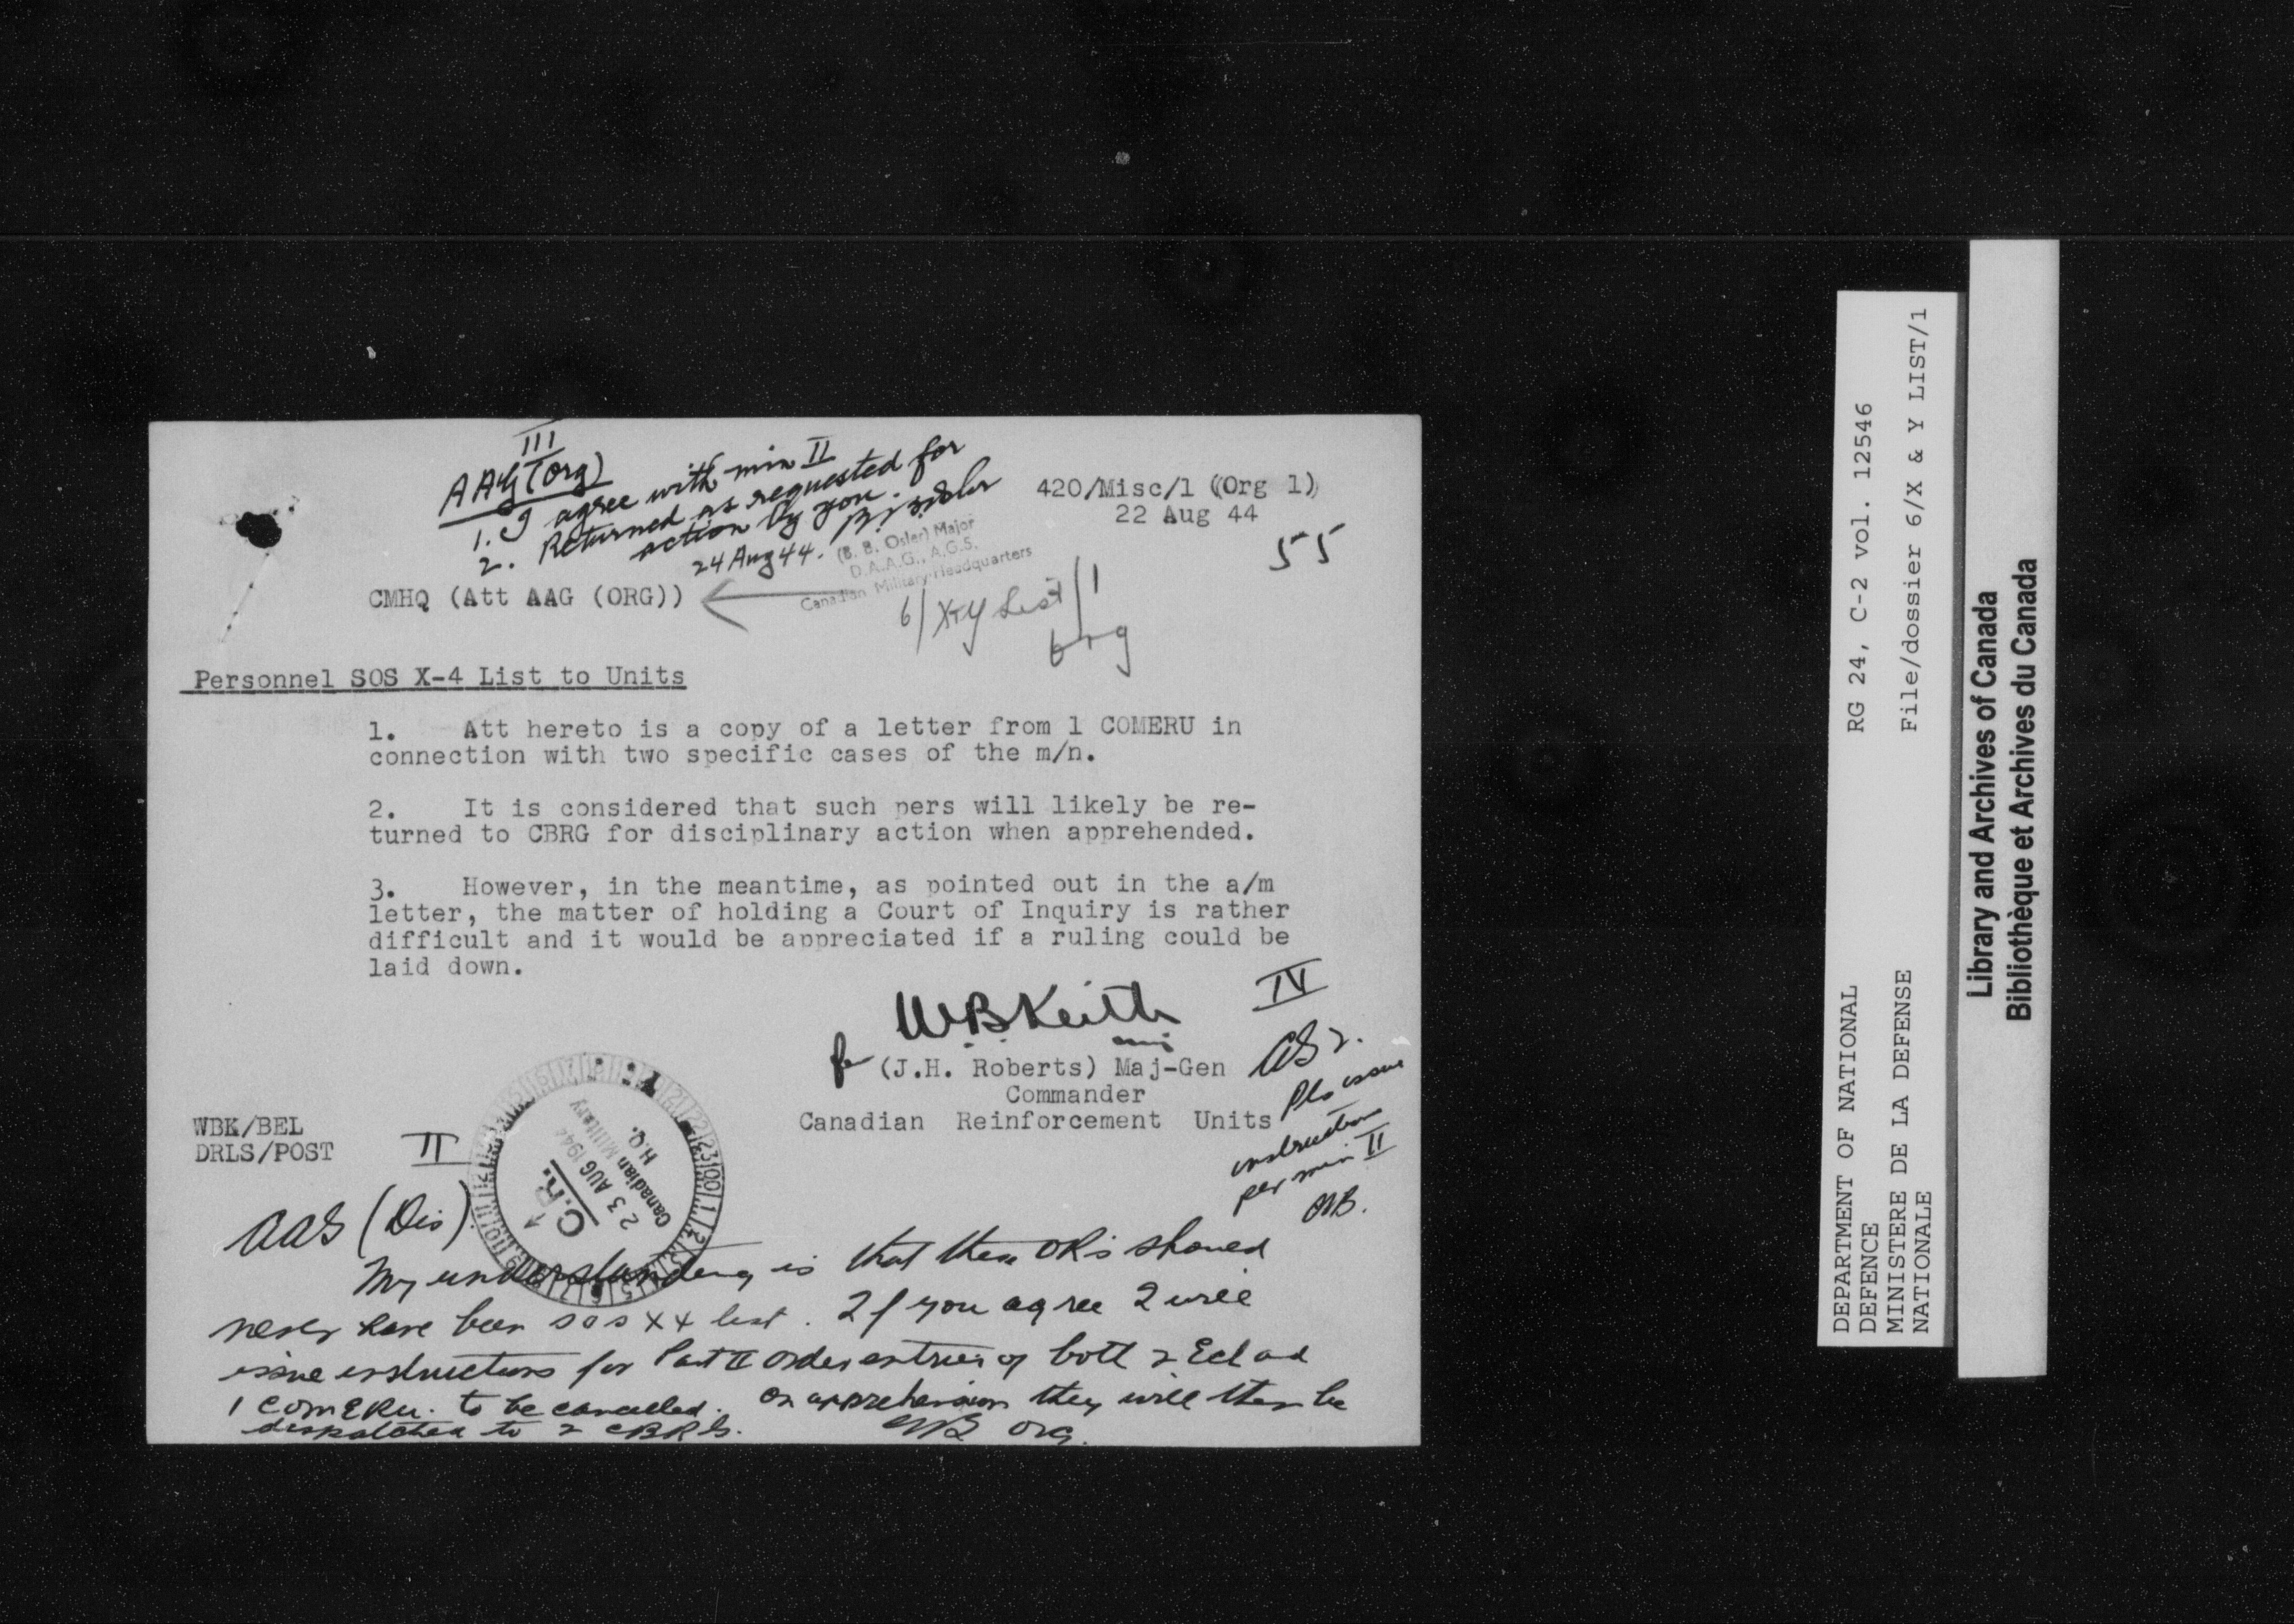 III
AAG (Org)
1. I agree with min II
2. Returned as requested for
action by you.
24 Aug 44.
(B. B. Osler) Major
D.A.A.G., A.G.S,
Canadian Military Headquarters
420/Misc/1 (Org 1)
22 Aug 44
55
CMHQ (Att AAG (ORG))
6/X+Y List/1
Org
Personnel SOS X-4 List to Units
1. Att hereto is a copy of a letter from 1 COMERU in
connection with two specific cases of the m/n.
2. It is considered that such pers will likely be re-
turned to CBRG for disciplinary action when apprehended.
3. However, in the meantime, as pointed out in the a/m
letter, the matter of holding a Court of Inquiry is rather
difficult and it would be appreciated if a ruling could be
laid down.
WBKeith
for (J.H. Roberts) Maj-Gen
Commander
Canadian Reinforcement Units
WBK/BEL
DRLS/POST
IV
Pls issue
instruction
per min II
C.R.
23 AUG 1944
Canadian Military
H.Q.
II
AAG (Dis)
My understanding is that these ORs should
never have been SOS X4 list. If you agree I will
issue instructions for Part II Order entries of both 2 Ech and
1 COMERU. to be cancelled. On apprehension they will then be
despatched to 2 CBRG.
Org.
DEPARTMENT OF NATIONAL
DEFENCE
MINISTERE DE LA DEFENSE
NATIONALE
RG 24, C-2 vol. 12546
File/dossier 6/X & Y LIST/1
Library and Archives of Canada
Bibliothèque et Archives du Canada